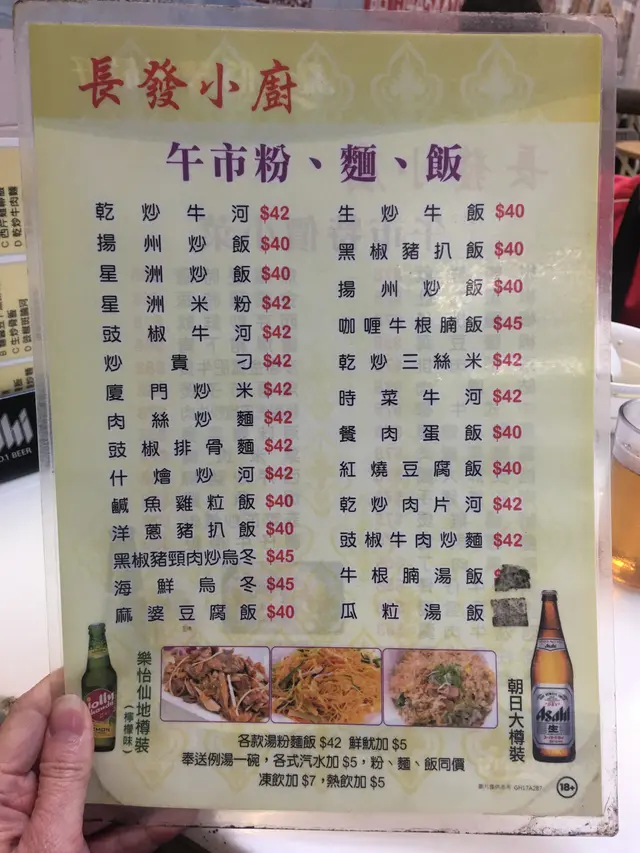 長發小廚
午市粉、麵、飯
乾炒牛河 $42
揚州炒飯 $40
星洲炒飯 $40
星洲米粉 $42
豉椒牛河 $42
炒貴刁 $42
廈門炒米 $42
肉絲炒麵 $42
豉椒排骨麵 $42
什燴炒河 $42
鹹魚雞粒飯 $40
洋蔥豬扒飯 $40
黑椒豬頸肉炒烏冬 $45
海鮮烏冬 $45
麻婆豆腐飯 $40
生炒牛飯 $40
黑椒豬扒飯 $40
揚州炒飯 $40
咖喱牛根腩飯 $45
乾炒三絲米 $42
時菜牛河 $42
餐肉蛋飯 $40
紅燒豆腐飯 $40
乾炒肉片河 $42
豉椒牛肉炒麵 $42
牛根腩湯飯
瓜粒湯飯
樂怡仙地樽裝
(檸檬味)
Jolly
朝日大樽裝
Asahi
生
各款湯粉麵飯 $42 鮮魷加 $5
奉送例湯一碗，各式汽水加 $5，粉、麵、飯同價
凍飲加 $7，熱飲加 $5
18+